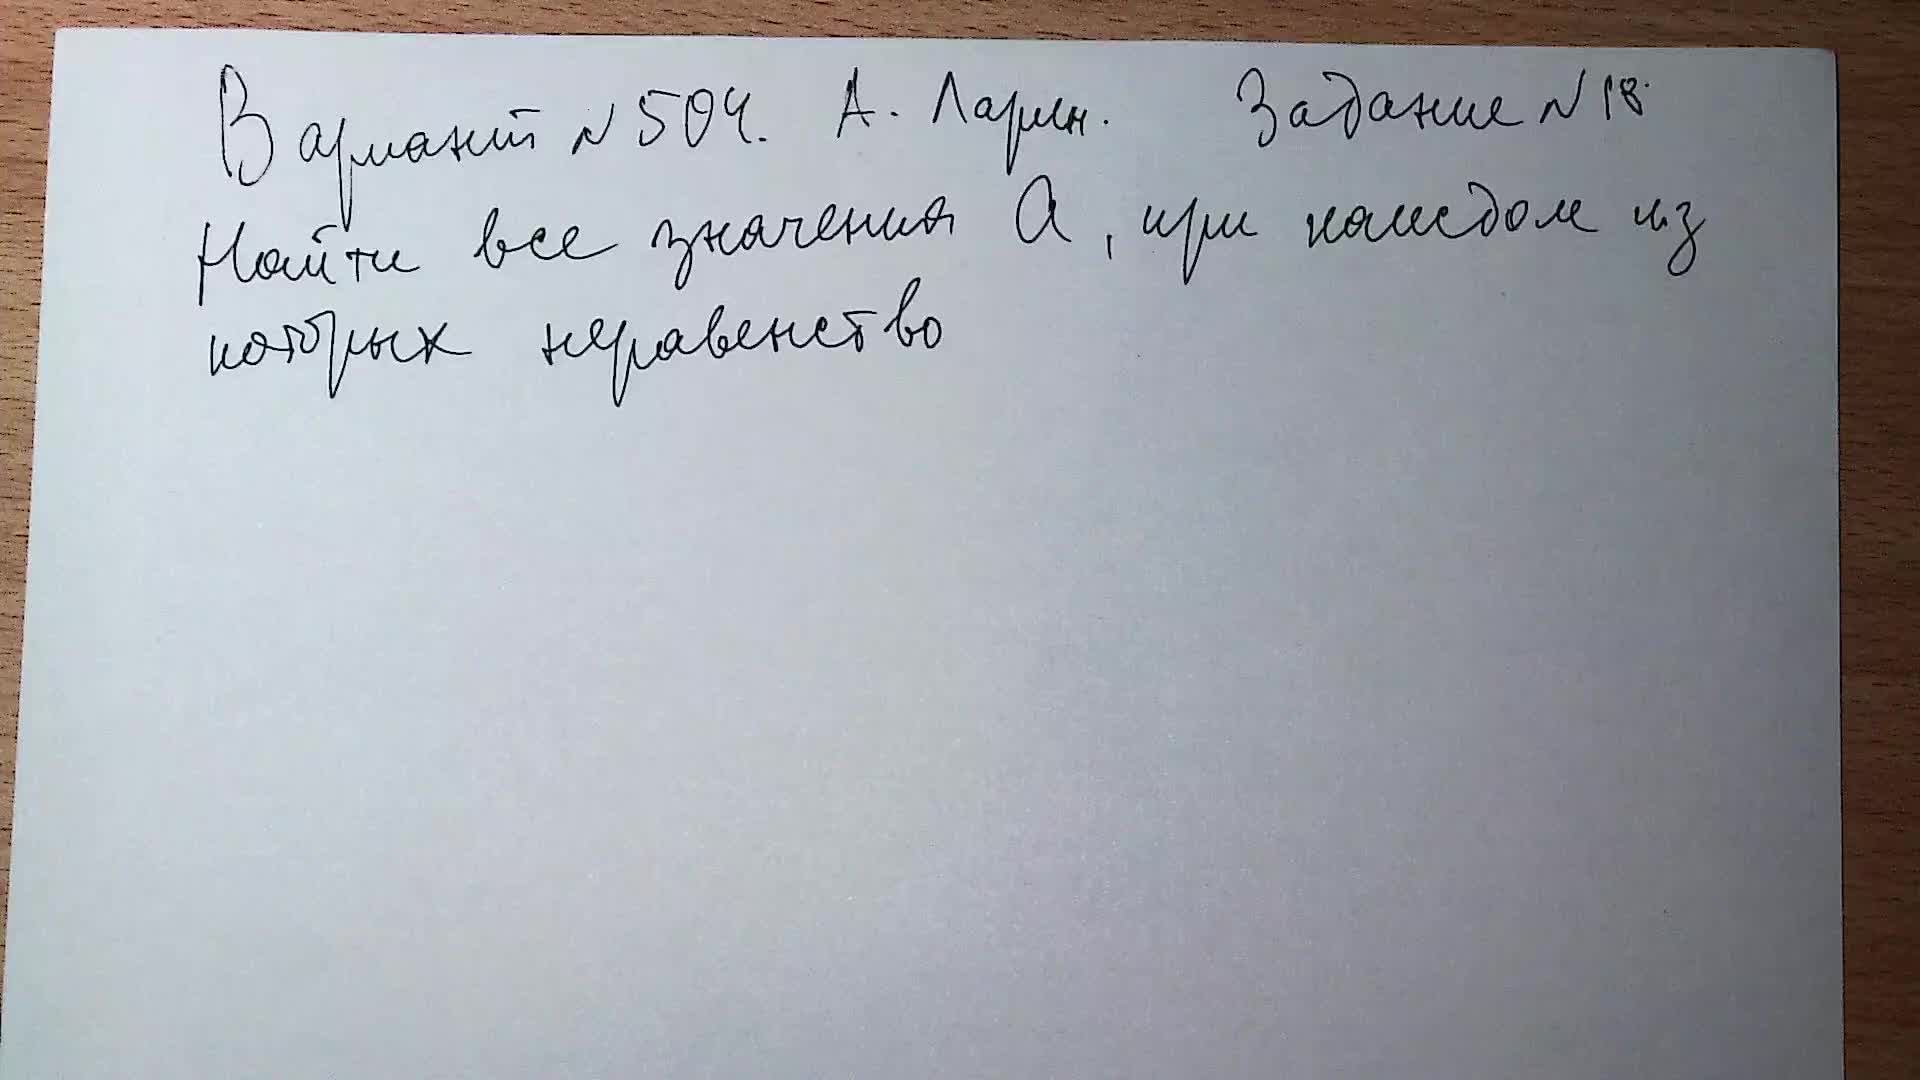 Вариант № 504. А. Ларин. Задание № 18.
Найти все значения а, при каждом из
которых неравенство